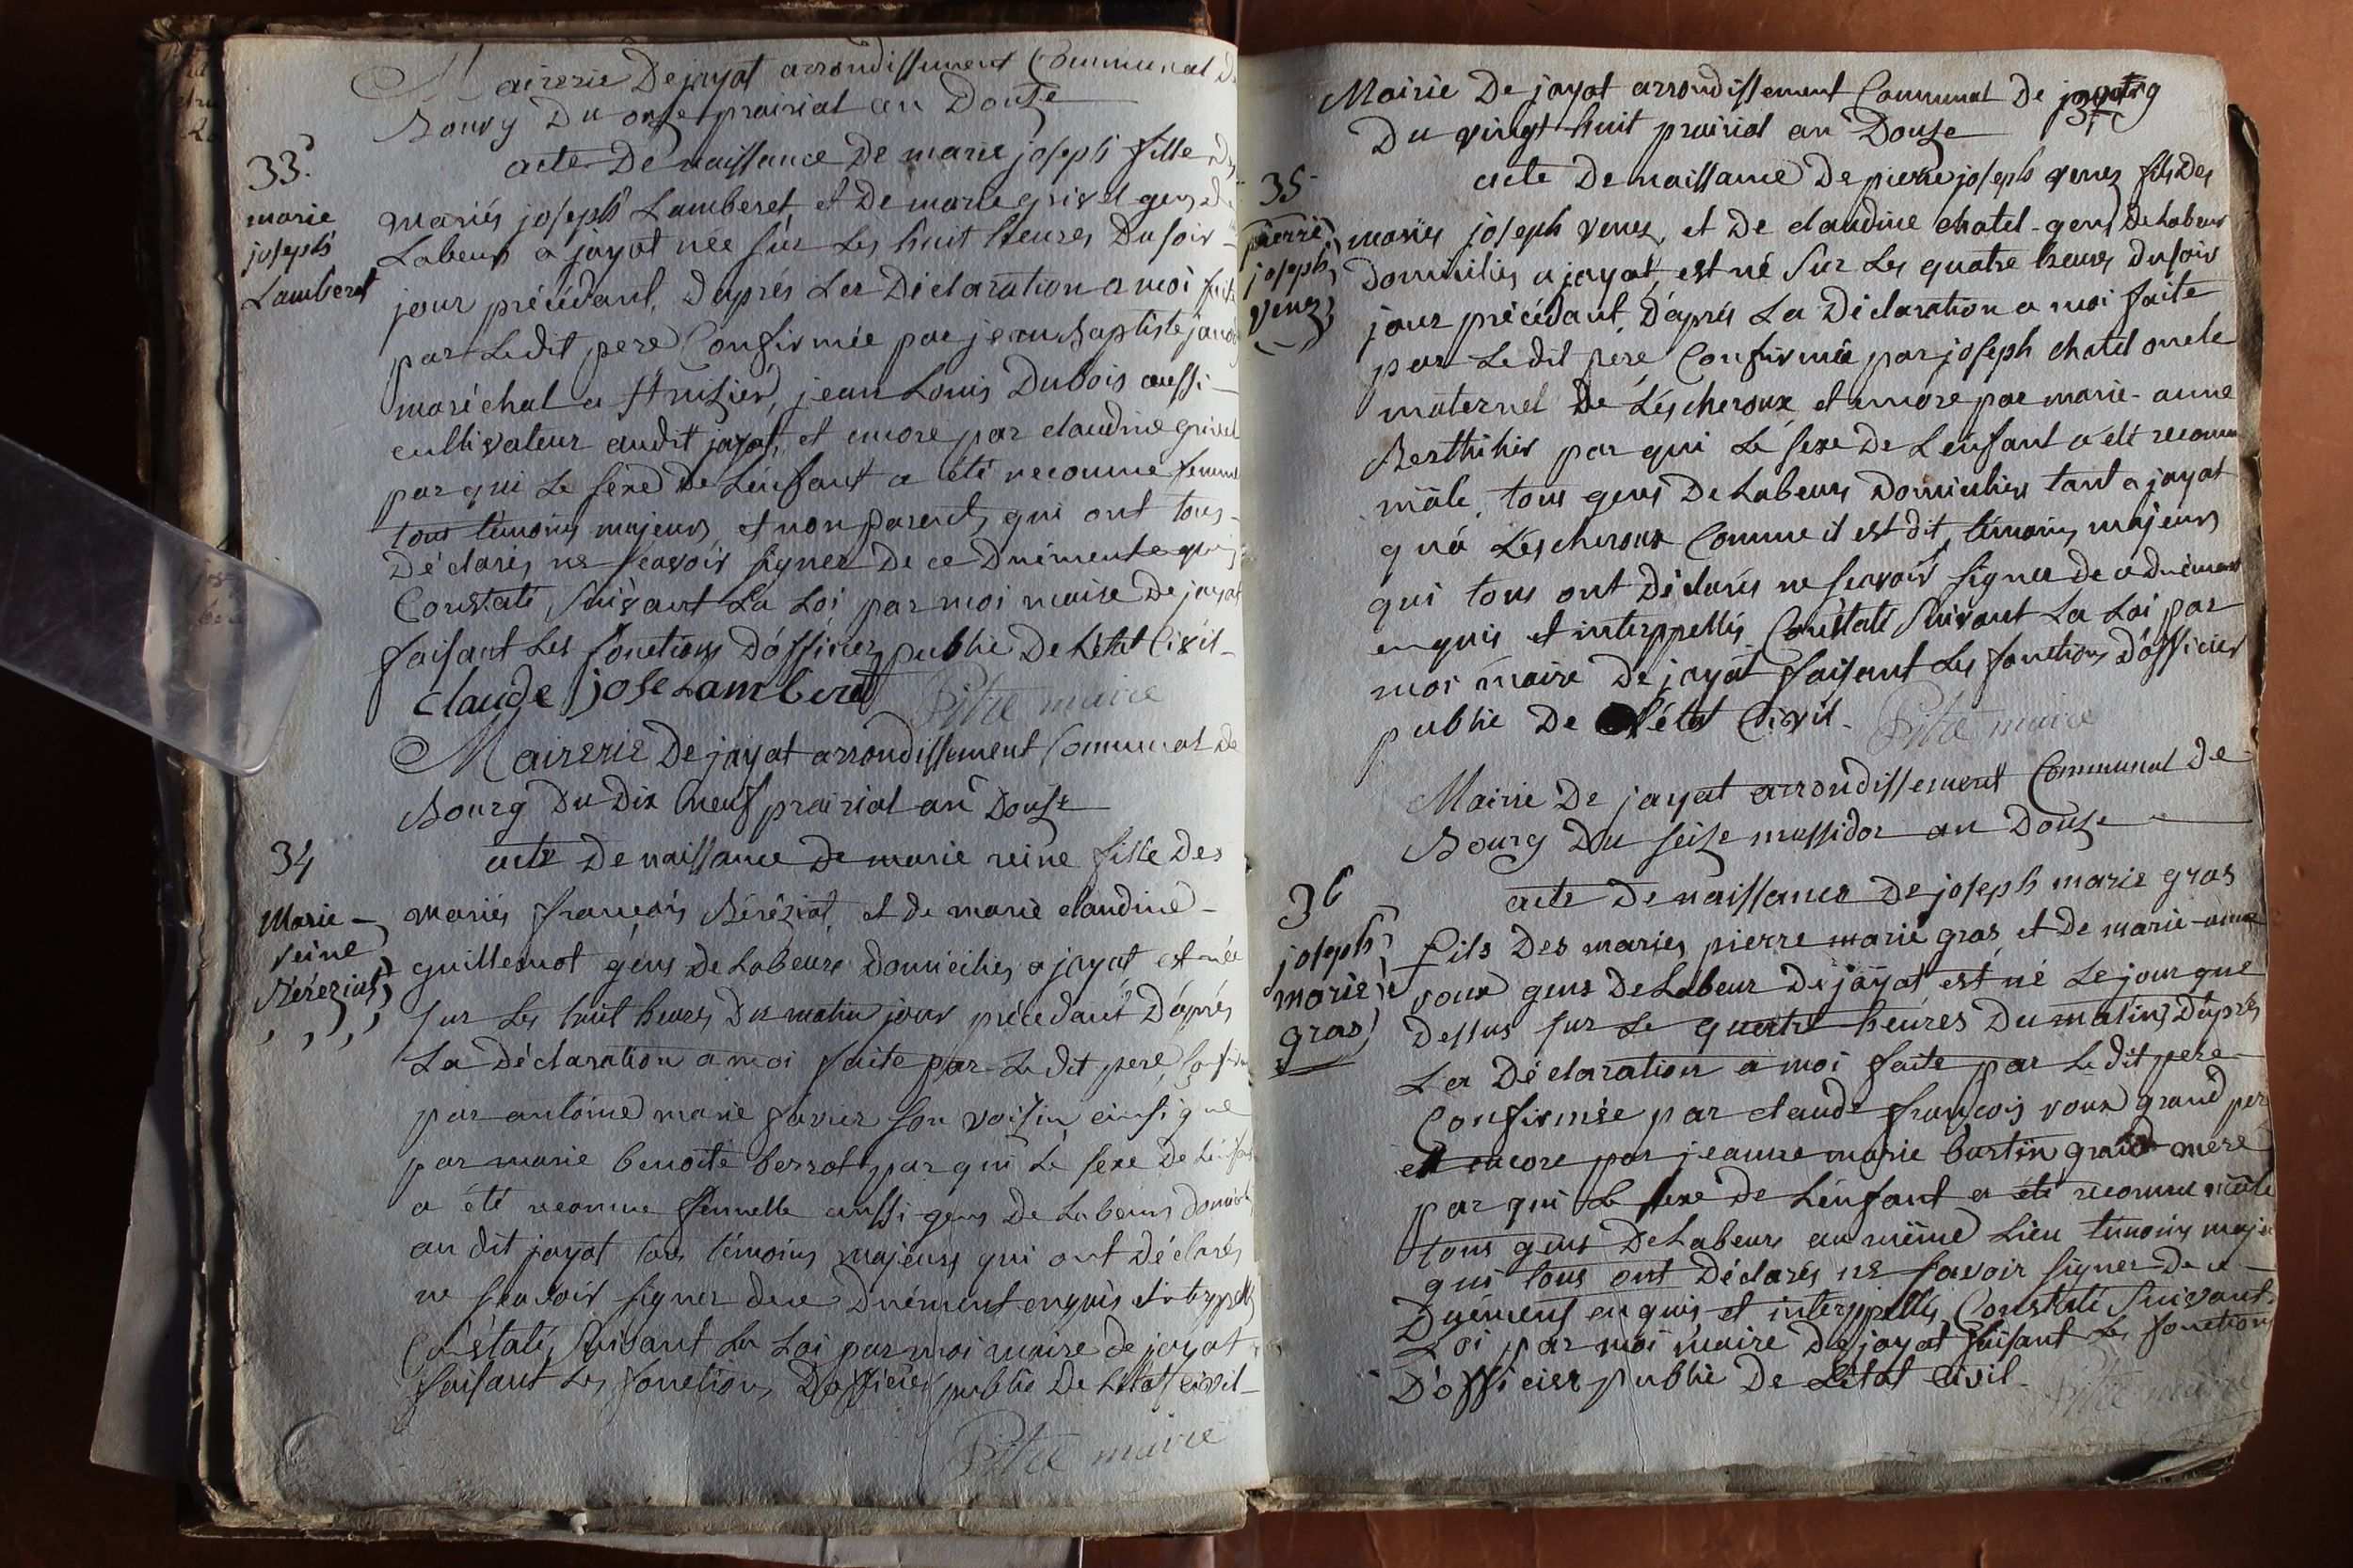 Mairerie De jayat arrondissement Communal De
Bourg Du onze prairial an Douze
33.
acte De naissance De marie joseph fille Des
marie
joseph
Lamberet
mariés joseph Lamberet et De marie grivel gens de
Labeur a jayat née sur Les huit heures Du soir
jour précédant, D'aprés La Déclaration a moi faite
par Ledit pere Confirmée par jean Baptiste
maréchal a St nizier, jean Louis Dubois aussi
cultivateur audit jayat, et encore par claudine grivel
par qui Le sexe De L'énfant a été reconnue
tous témoins majeurs et non Parents, qui ont tous
Déclarés ne scavoir signer De ce Duëment enquis
Constaté, suivant La Loi par moi maire De jayat
faisant Les fonctions D'officier public De L'état Civil
claude jose Lamberet Pitre maire
Mairerie De jayat arrondissement Communal De
Bourg Du Dix neuf prairial an Douze
34
acte De naissance De marie reine fille Des
Marie
reine
Béréziat
mariés françois Béréziat, et de marie claudine
guillemot gens De Labeurs domiciliés a jayat est née
sur Les huit heures Du matin jour précédant D'aprés
La Déclaration a moi faite par Le dit pere,
par antoine marie favier son voisin, ainsi que
par marie benoite berrot, par qui Le sexe De L'énfant
a été reconnue fémelle aussi gens De Labeurs
au dit jayat tous témoins majeurs qui ont Déclarés
ne scavoir signer de ce Duëment enquis et interppellés
Constaté, suivant La Loi par moi maire de jayat
faisant Les fonctions D'officier public De L'état civil
Pitre maire
Mairie De jayat arrondissement Communal De
Du vingt huit prairial an Douze
35
acte De naissance De pierre joseph venez fils Des
pierre
joseph
venez
mariés joseph venez, et De claudine chatel gens De Labeur
Domiciliés a jayat, est né sur Les quatre heures Du soir
jour précédant, D'aprés La Déclaration a moi faite
par Le dit pere, Confirmée par joseph chatel oncle
maternel De Léscheroux et encore par marie-anne
par qui Le sexe De L'énfant a été reconnu
mâle, tous gens De Labeurs Domiciliés tant a jayat
qu'á Léscheroux Comme il est dit, témoins majeurs
qui tous ont Déclarés ne scavoir signer de ce duëment
enquis et interppellés, Constaté suivant La Loi par
moi maire De jayat faisant Les fonctions D'officier
public De L'état Civil. Pitre maire
Mairie De jayat arrondissement Communal De
Bourg Du seize messidor an Douze
36
acte De naissance De joseph marie gras
joseph
marie
gras
fils Des mariés pierre marie gras, et De marie-anne
roux gens De Labeur De jayat est né Le jour que
Dessus sur Le quatre heures Du matin, D'aprés
La Déclaration a moi faite par Le dit pere
Confirmée par claude françois roux grand pere
et encore par jeanne marie burtin grand mere
par qui Le sexe De L'énfant a été reconnu mâle
tous gens De Labeurs au même Lieu témoins majeurs
qui tous ont Déclarés ne savoir signer De ce
Duëment enquis, et interppellés, Constaté suivant
Loi par moi maire De jayat faisant Les fonctions
D'officier public De L'état Civil
Pitre maire